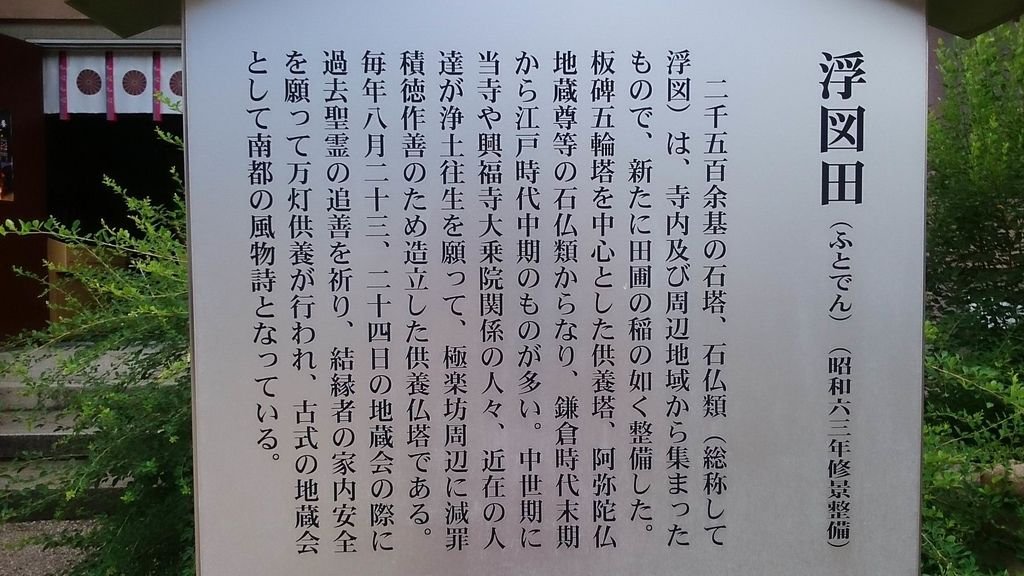 浮図田（ふとでん）（昭和六三年修景整備）
二千五百余基の石塔、石仏類（総称して
浮図）は、寺内及び周辺地域から集まった
もので、新たに田圃の稲の如く整備した。
板碑五輪塔を中心とした供養塔、阿弥陀仏
地蔵尊等の石仏類からなり、鎌倉時代末期
から江戸時代中期のものが多い。中世期に
当寺や興福寺大乗院関係の人々、近在の人
達が浄土往生を願って、極楽坊周辺に減罪
積徳作善のため造立した供養仏塔である。
毎年八月二十三、二十四日の地蔵会の際に
過去聖霊の追善を祈り、結縁者の家内安全
を願って万灯供養が行われ、古式の地蔵会
として南都の風物詩となっている。